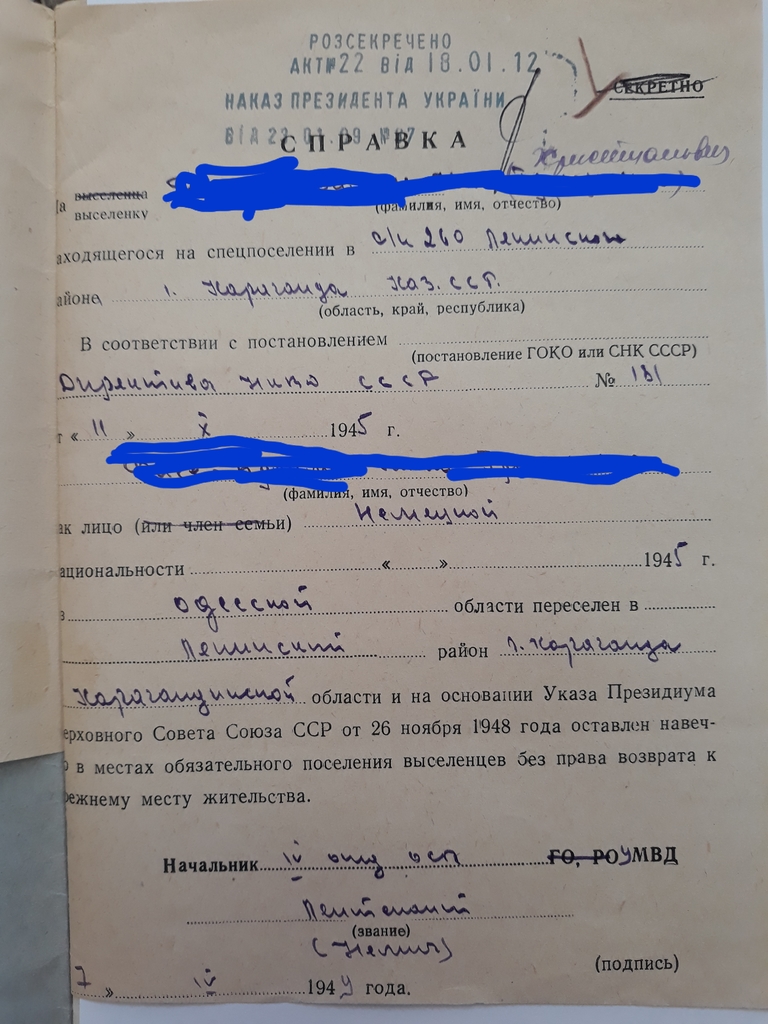 РОЗСЕКРЕЧЕНО
АКТ№22 ВІД 18.01.12
СЕКРЕТНО
НАКАЗ ПРЕЗИДЕНТА УКРАЇНИ
ВІД 23.01.09 №
СПРАВКА
а выселенца
выселенку
(фамилия, имя, отчество)
аходящегося на спецпоселении в с/к 260 Ленинском
айоне, г. Караганда Каз. ССР.
(область, край, республика)
В соответствии с постановлением
(постановление ГОКО или СНК СССР)
Директивы НКВД СССР № 181
т « 11 » X 1945 г.
(фамилия, имя, отчество)
ак лицо (или член семьи) Немецкой
ациональности « » 1945 г.
з Одесской области переселен в
Ленинский район г. Караганда
Карагандинской области и на основании Указа Президиума
ерховного Совета Союза ССР от 26 ноября 1948 года оставлен навеч-
о в местах обязательного поселения выселенцев без права возврата к
режнему месту жительства.
Начальник IV отд ОСП ГО, РО УМВД
Лейтенант
(звание)
(подпись)
7 » IV 1949 года.